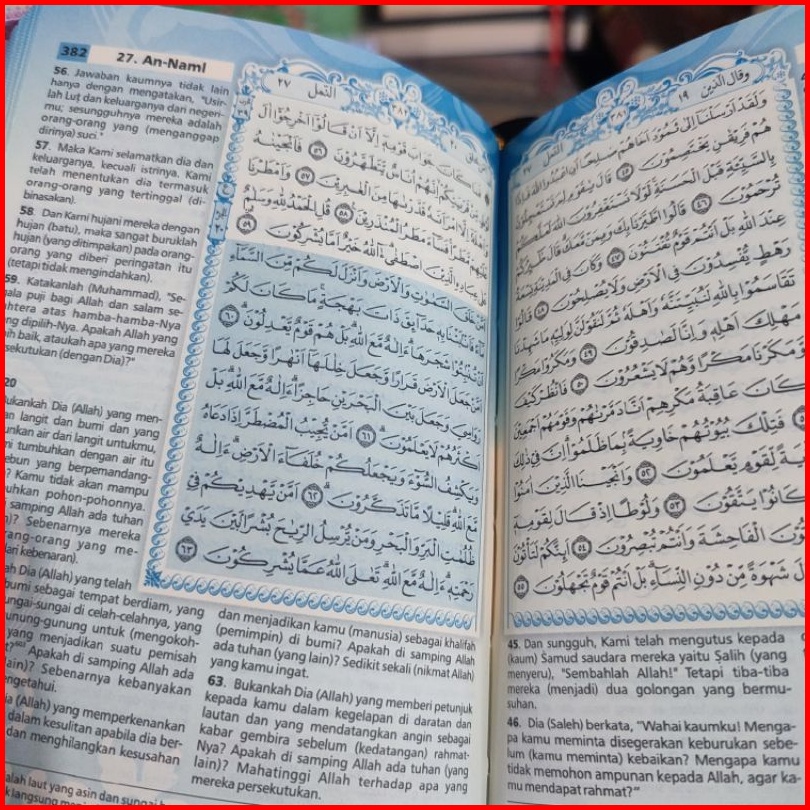 382
27. An-Naml
56. Jawaban kaumnya tidak lain
hanya dengan mengatakan, "Usir-
lah Luṭ dan keluarganya dari negeri-
mu; sesungguhnya mereka adalah
orang-orang yang (menganggap
dirinya) suci."
57. Maka Kami selamatkan dia dan
keluarganya, kecuali istrinya. Kami
telah menentukan dia termasuk
orang-orang yang tertinggal (di-
binasakan).
58. Dan Kami hujani mereka dengan
hujan (batu), maka sangat buruklah
hujan (yang ditimpakan) pada orang-
orang yang diberi peringatan itu
(tetapi tidak mengindahkan).
59. Katakanlah (Muhammad), "Se-
ala puji bagi Allah dan salam se-
htera atas hamba-hamba-Nya
ng dipilih-Nya. Apakah Allah yang
ih baik, ataukah apa yang mereka
sekutukan (dengan Dia)?"
20
ukankah Dia (Allah) yang men-
an langit dan bumi dan yang
unkan air dari langit untukmu,
ni tumbuhkan dengan air itu
ebun yang berpemandang-
? Kamu tidak akan mampu
uhkan pohon-pohonnya.
samping Allah ada tuhan
n)? Sebenarnya mereka
rang-orang yang me-
dari kebenaran).
ah Dia (Allah) yang telah
bumi sebagai tempat berdiam, yang
ungai-sungai di celah-celahnya, yang
unung-gunung untuk (mengokoh-
yang menjadikan suatu pemisah
Apakah di samping Allah ada
ain)? Sebenarnya kebanyakan
engetahui.
a (Allah) yang memperkenankan
dalam kesulitan apabila dia ber-
dan menghilangkan kesusahan
dan menjadikan kamu (manusia) sebagai khalifah
(pemimpin) di bumi? Apakah di samping Allah
ada tuhan (yang lain)? Sedikit sekali (nikmat Allah)
yang kamu ingat.
63. Bukankah Dia (Allah) yang memberi petunjuk
kepada kamu dalam kegelapan di daratan dan
lautan dan yang mendatangkan angin sebagai
kabar gembira sebelum (kedatangan) rahmat-
Nya? Apakah di samping Allah ada tuhan (yang
lain)? Mahatinggi Allah terhadap apa yang
mereka persekutukan.
alah laut yang asin dan sungai
النمل ٢٧
٣٨٢
فَمَا كَانَ جَوَابَ قَوْمِهٖٓ اِلَّآ اَنْ قَالُوْٓا اَخْرِجُوْٓا اٰلَ
لُوْطٍ مِّنْ قَرْيَتِكُمْ اِنَّهُمْ اُنَاسٌ يَّتَطَهَّرُوْنَ ٥٦ فَاَنْجَيْنٰهُ
وَاَهْلَهٗٓ اِلَّا امْرَاَتَهٗ قَدَّرْنٰهَا مِنَ الْغٰبِرِيْنَ ٥٧ وَاَمْطَرْنَا
عَلَيْهِمْ مَّطَرًا فَسَاۤءَ مَطَرُ الْمُنْذَرِيْنَ ٥٨ قُلِ الْحَمْدُ لِلّٰهِ وَسَلٰمٌ
عَلٰى عِبَادِهِ الَّذِيْنَ اصْطَفٰى اٰۤللّٰهُ خَيْرٌ اَمَّا يُشْرِكُوْنَ ٥٩
اَمَّنْ خَلَقَ السَّمٰوٰتِ وَالْاَرْضَ وَاَنْزَلَ لَكُمْ مِّنَ السَّمَاۤءِ
مَاۤءً فَاَنْۢبَتْنَا بِهٖ حَدَاۤىِٕقَ ذَاتَ بَهْجَةٍ مَا كَانَ لَكُمْ
اَنْ تُنْۢبِتُوْا شَجَرَهَا ءَاِلٰهٌ مَّعَ اللّٰهِ بَلْ هُمْ قَوْمٌ يَّعْدِلُوْنَ ٦٠
اَمَّنْ جَعَلَ الْاَرْضَ قَرَارًا وَّجَعَلَ خِلٰلَهَآ اَنْهٰرًا وَّجَعَلَ لَهَا
رَوَاسِيَ وَجَعَلَ بَيْنَ الْبَحْرَيْنِ حَاجِزًا ءَاِلٰهٌ مَّعَ اللّٰهِ بَلْ
اَكْثَرُهُمْ لَا يَعْلَمُوْنَ ٦١ اَمَّنْ يُّجِيْبُ الْمُضْطَرَّ اِذَا دَعَاهُ
وَيَكْشِفُ السُّوْۤءَ وَيَجْعَلُكُمْ خُلَفَاۤءَ الْاَرْضِ ءَاِلٰهٌ
مَّعَ اللّٰهِ قَلِيْلًا مَّا تَذَكَّرُوْنَ ٦٢ اَمَّنْ يَّهْدِيْكُمْ فِيْ
ظُلُمٰتِ الْبَرِّ وَالْبَحْرِ وَمَنْ يُّرْسِلُ الرِّيٰحَ بُشْرًاۢ بَيْنَ يَدَيْ
رَحْمَتِهٖ ءَاِلٰهٌ مَّعَ اللّٰهِ تَعٰلَى اللّٰهُ عَمَّا يُشْرِكُوْنَ ٦٣
وقال الذين ١٩
٣٨١
النمل ٢٧
وَلَقَدْ اَرْسَلْنَآ اِلٰى ثَمُوْدَ اَخَاهُمْ صٰلِحًا اَنِ اعْبُدُوا اللّٰهَ فَاِذَا
هُمْ فَرِيْقٰنِ يَخْتَصِمُوْنَ ٤٥ قَالَ يٰقَوْمِ لِمَ تَسْتَعْجِلُوْنَ
بِالسَّيِّئَةِ قَبْلَ الْحَسَنَةِ لَوْلَا تَسْتَغْفِرُوْنَ اللّٰهَ لَعَلَّكُمْ
تُرْحَمُوْنَ ٤٦ قَالُوا اطَّيَّرْنَا بِكَ وَبِمَنْ مَّعَكَ قَالَ طٰۤىِٕرُكُمْ
عِنْدَ اللّٰهِ بَلْ اَنْتُمْ قَوْمٌ تُفْتَنُوْنَ ٤٧ وَكَانَ فِى الْمَدِيْنَةِ تِسْعَةُ
رَهْطٍ يُّفْسِدُوْنَ فِى الْاَرْضِ وَلَا يُصْلِحُوْنَ ٤٨ قَالُوْا
تَقَاسَمُوْا بِاللّٰهِ لَنُبَيِّتَنَّهٗ وَاَهْلَهٗ ثُمَّ لَنَقُوْلَنَّ لِوَلِيِّهٖ مَا شَهِدْنَا
مَهْلِكَ اَهْلِهٖ وَاِنَّا لَصٰدِقُوْنَ ٤٩ وَمَكَرُوْا مَكْرًا
وَّمَكَرْنَا مَكْرًا وَّهُمْ لَا يَشْعُرُوْنَ ٥٠ فَانْظُرْ كَيْفَ
كَانَ عَاقِبَةُ مَكْرِهِمْ اَنَّا دَمَّرْنٰهُمْ وَقَوْمَهُمْ اَجْمَعِيْنَ
فَتِلْكَ بُيُوْتُهُمْ خَاوِيَةً بِمَا ظَلَمُوْا اِنَّ فِيْ ذٰلِكَ
لِّقَوْمٍ يَّعْلَمُوْنَ ٥٢ وَاَنْجَيْنَا الَّذِيْنَ اٰمَنُوْا
كَانُوْا يَتَّقُوْنَ ٥٣ وَلُوْطًا اِذْ قَالَ لِقَوْمِهٖٓ
الْفَاحِشَةَ وَاَنْتُمْ تُبْصِرُوْنَ ٥٤ اَىِٕنَّكُمْ لَتَأْتُوْنَ
شَهْوَةً مِّنْ دُوْنِ النِّسَاۤءِ بَلْ اَنْتُمْ قَوْمٌ تَجْهَلُوْنَ ٥٥
45. Dan sungguh, Kami telah mengutus kepada
(kaum) Samud saudara mereka yaitu Ṣalih (yang
menyeru), "Sembahlah Allah!" Tetapi tiba-tiba
mereka (menjadi) dua golongan yang bermu-
suhan.
46. Dia (Saleh) berkata, "Wahai kaumku! Menga-
pa kamu meminta disegerakan keburukan sebe-
lum (kamu meminta) kebaikan? Mengapa kamu
tidak memohon ampunan kepada Allah, agar ka-
mu mendapat rahmat?"